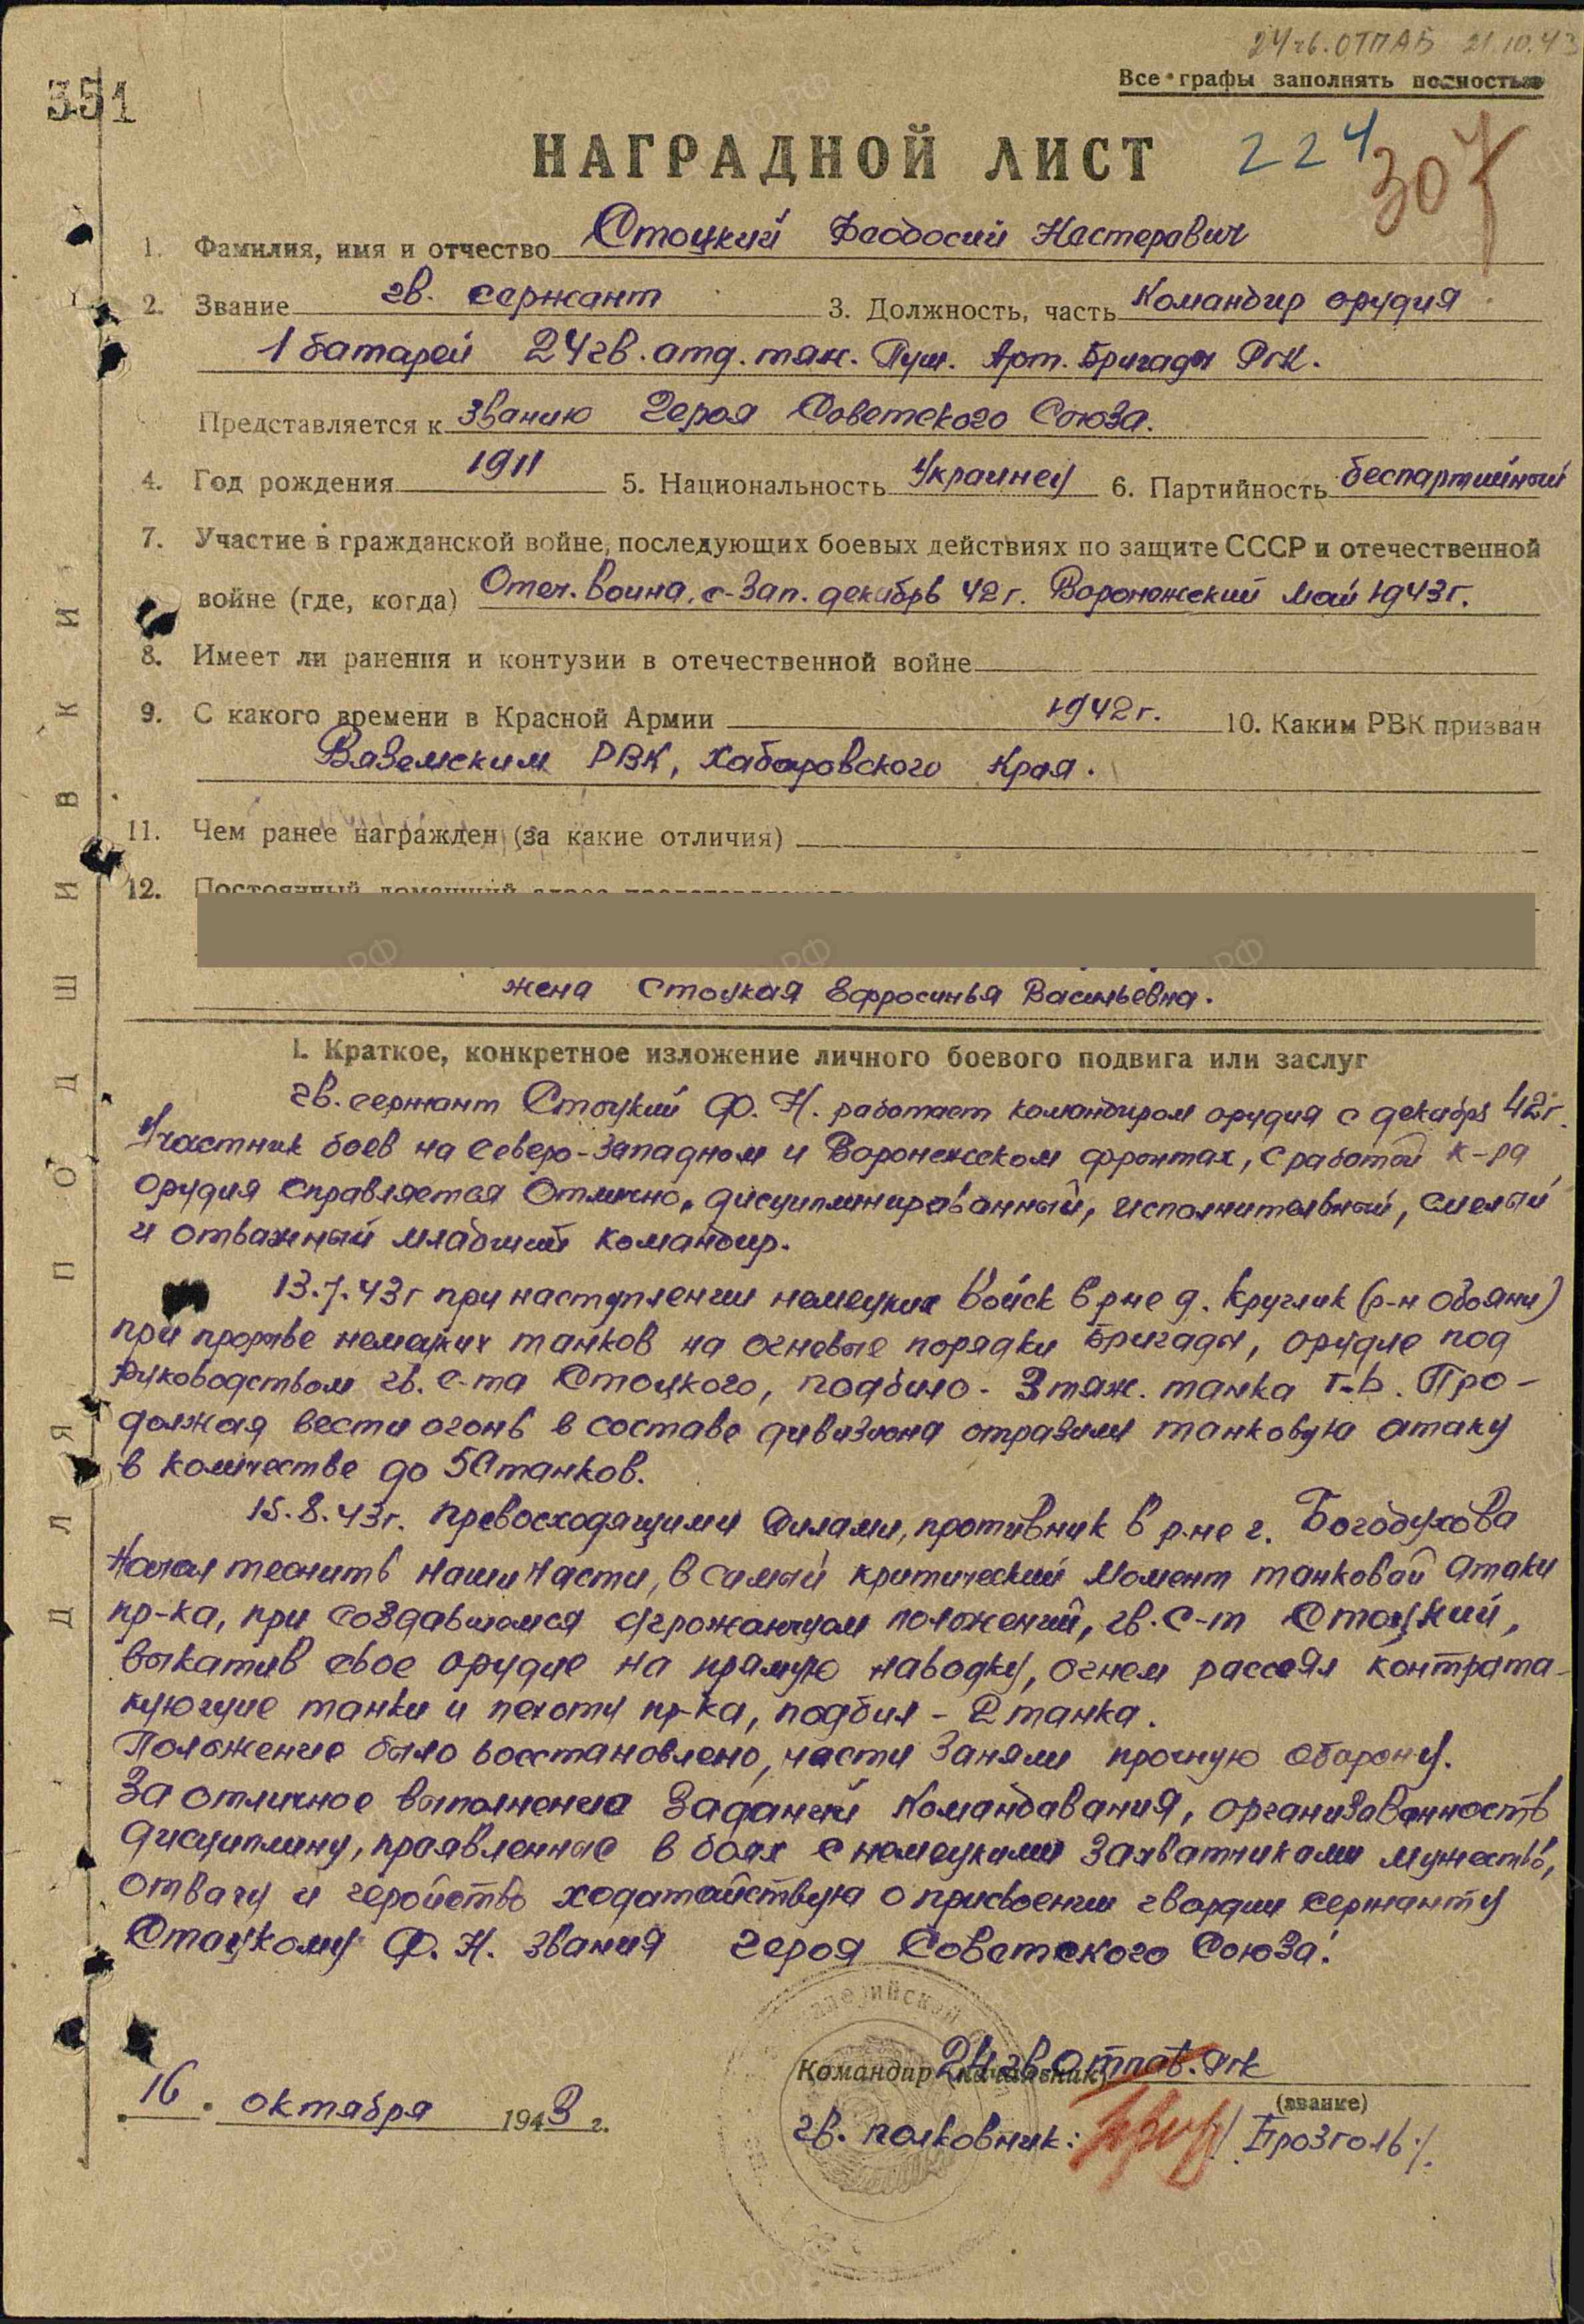 24 гв. ОТПАБ 21.10.43
Все графы заполнять полностью
351
НАГРАДНОЙ ЛИСТ
224
307
1. Фамилия, имя и отчество Стоцкий Феодосий Нестерович
2. Звание гв. сержант 3. Должность, часть Командир орудия
1 батареи 24 гв. отд. тяж. Пуш. Арт. Бригады РГК.
Представляется к званию Героя Советского Союза.
4. Год рождения 1911 5. Национальность Украинец 6. Партийность беспартийный
7. Участие в гражданской войне, последующих боевых действиях по защите СССР и отечественной
войне (где, когда) Отеч. война, с-Зап. декабрь 42 г. Воронежский май 1943 г.
8. Имеет ли ранения и контузии в отечественной войне
9. С какого времени в Красной Армии 1942 г. 10. Каким РВК призван
Вяземским РВК, Хабаровского Края.
11. Чем ранее награжден (за какие отличия)
12. Постоянный домашний адрес
жена Стоцкая Ефросинья Васильевна.
ДЛЯ ПОДШИВКИ
I. Краткое, конкретное изложение личного боевого подвига или заслуг
гв. сержант Стоцкий Ф. Н. работает командиром орудия с декабря 42 г.
Участник боев на Северо-Западном и Воронежском фронтах, с работой к-ра
орудия справляется отлично, дисциплинированный, исполнительный, смелый
и отважный младший командир.
13.7.43 г при наступлении немецких войск в р-не д. Круглик (р-н Обояни)
при прорыве немецких танков на огневые порядки Бригады, орудие под
руководством гв. с-та Стоцкого, подбило - 3 тяж. танка Т-6. Про-
должая вести огонь в составе дивизиона отразили танковую атаку
в количестве до 50 танков.
15.8.43 г. превосходящими силами, противник в р-не г. Богодухова
начал теснить наши части, в самый критический момент танковой атаки
пр-ка, при создавшемся угрожающем положении, гв. с-т Стоцкий,
выкатив свое орудие на прямую наводку, огнем рассеял контрата-
кующие танки и пехоту пр-ка, подбил - 2 танка.
Положение было восстановлено, части заняли прочную оборону.
За отличное выполнение заданий командования, организованность
дисциплину, проявленные в боях с немецкими захватчиками мужество,
отвагу и геройство ходатайствую о присвоении гвардии сержанту
Стоцкому Ф. Н. звания героя Советского Союза.
Командир (начальник) 24 гв отпаб. РГК
(звание)
16 октября 1943 г.
гв. полковник: /Брозголь/.